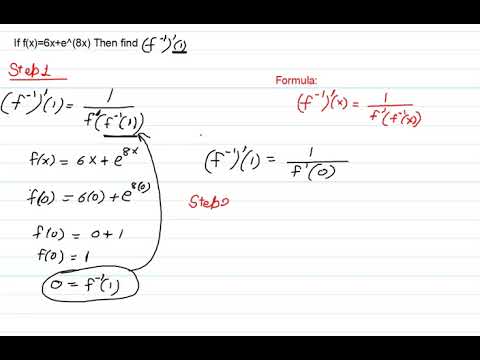 If f(x)=6x+e^(8x) Then find (f⁻¹)'(1)
Step1
Formula:
(f⁻¹)'(x) = 1/f'(f⁻¹(x))
(f⁻¹)'(1) = 1/f'(f⁻¹(1))
f(x) = 6x + e^8x
f(0) = 6(0) + e^8(0)
f(0) = 0 + 1
f(0) = 1
0 = f⁻¹(1)
(f⁻¹)'(1) = 1/f'(0)
Step